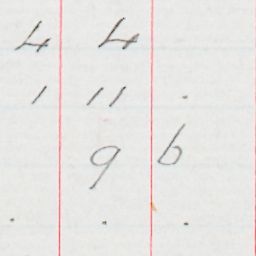 4 4
1 11 .
9 6
. . .